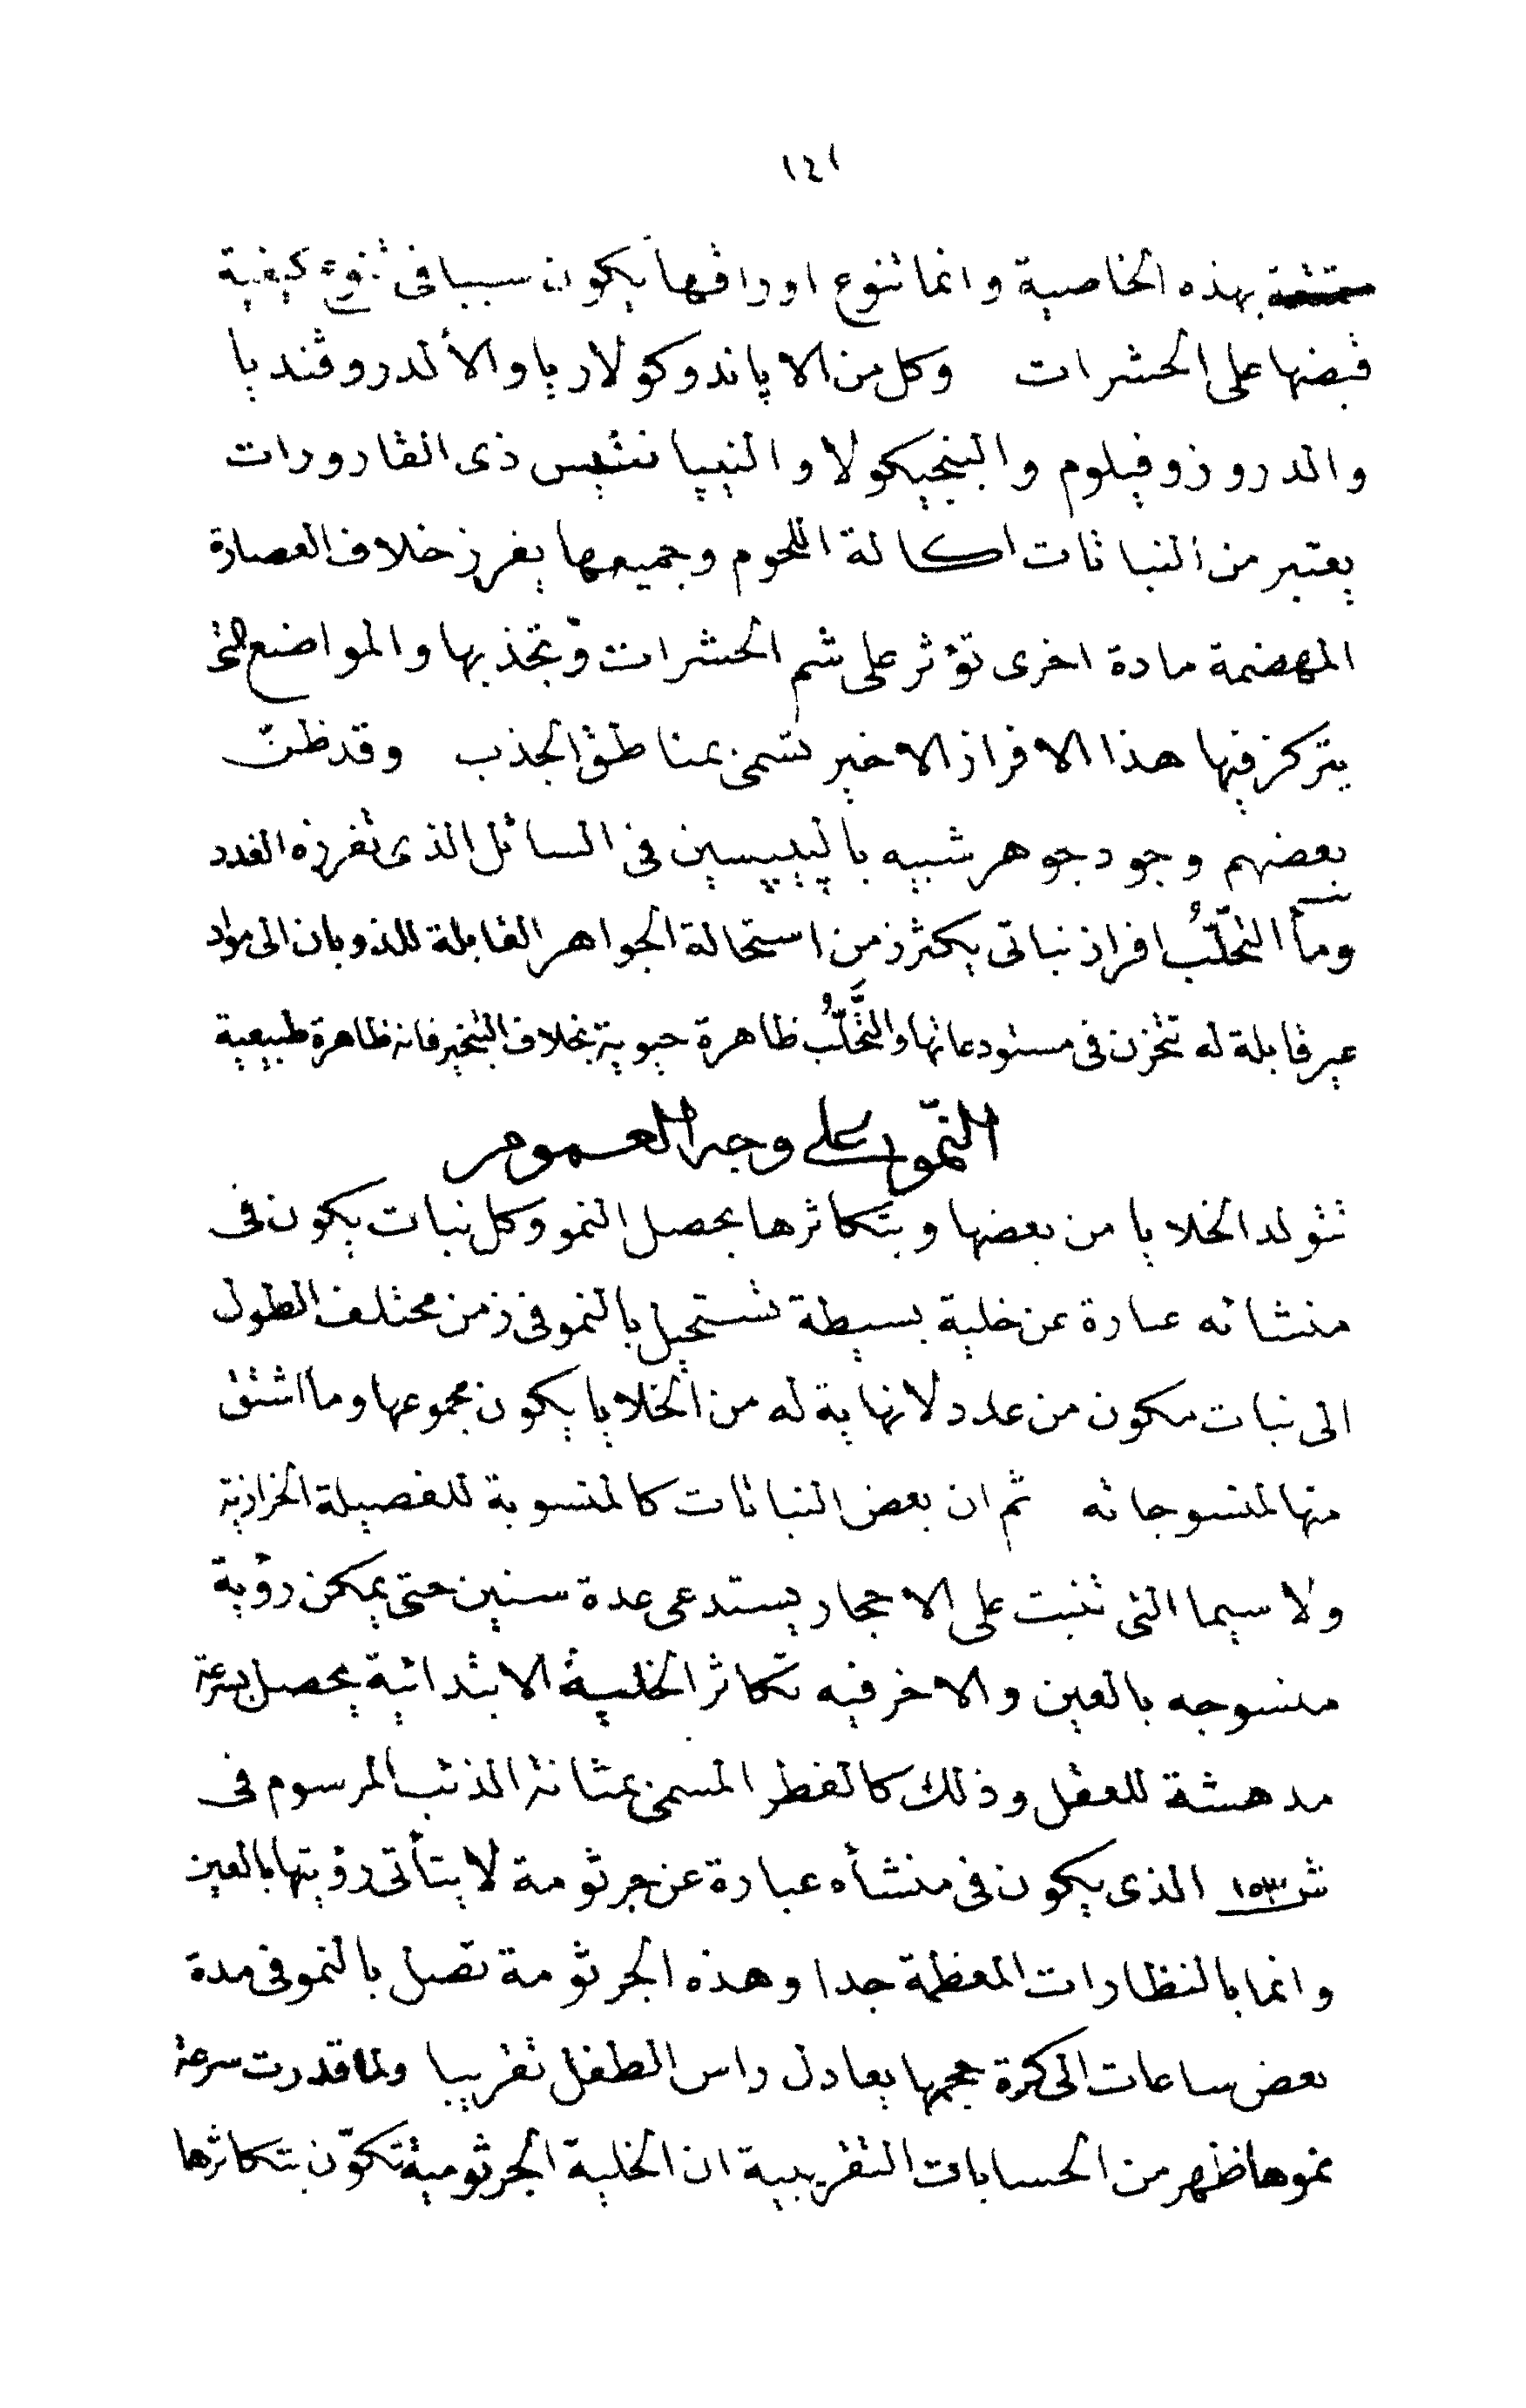 ١٤١
متمتعة بهذه الخاصية وانما تنوع اوراقها يكون سببا فى تنوع كيفية
قبضها على الحشرات وكل من الاپاندوكولاريا والألدروفنديا
والدروزوفيلوم والبنجيكولا والنيپانتيس ذى القارورات
يعتبر من النباتات اكالة اللحوم وجميعها يفرز خلاف العصارة
المهضمة مادة اخرى تؤثر على شم الحشرات وتجذبها والمواضع التى
يتركز فيها هذا الافراز الاخير تسمى بمناطق الجذب وقد ظن
بعضهم وجود جوهر شبيه بالپيپسين فى السائل الذى تفرزه الغدد
ومنشأ التحلّبُ افراز نباتى يكثر زمن استحالة الجواهر القابلة للذوبان الى مواد
غير قابلة له تتخزن فى مستودعاتها والتَّحلّبُ ظاهرة حيوية بخلاف التبخير فانه ظاهرة طبيعية
النموّ على وجه العموم
تتولد الخلايا من بعضها وبتكاثرها يحصل النمو وكل نبات يكون فى
منشائه عبارة عن خلية بسيطة تستحيل بالنمو فى زمن مختلف الطول
الى نبات مكون من عدد لا نهاية له من الخلايا يكون مجموعها وما اشتق
منها لمنسوجاته ثم ان بعض النباتات كالمنسوبة للفصيلة الخزازية
ولا سيما التى تنبت على الاحجار يستدعى عدة سنين حتى يمكن رؤية
منسوجه بالعين والاخر فيه تكاثر الخلية الابتدائية يحصل بسرعة
مدهشة للعقل وذلك كالفطر المسمى بمثانة الذئب المرسوم فى
ش ١٥٣ الذى يكون فى منشأه عبارة عن جرثومة لا يتأتى رؤيتها بالعين
وانما بالنظارات المعظمة جدا وهذه الجرثومة تصل بالنمو فى مدة
بعض ساعات الى كرة حجمها يعادل راس الطفل تقريبا ولما قدرت سرعة
نموها ظهر من الحسابات التقريبية ان الخلية الجرثومية تكوّن بتكاثرها